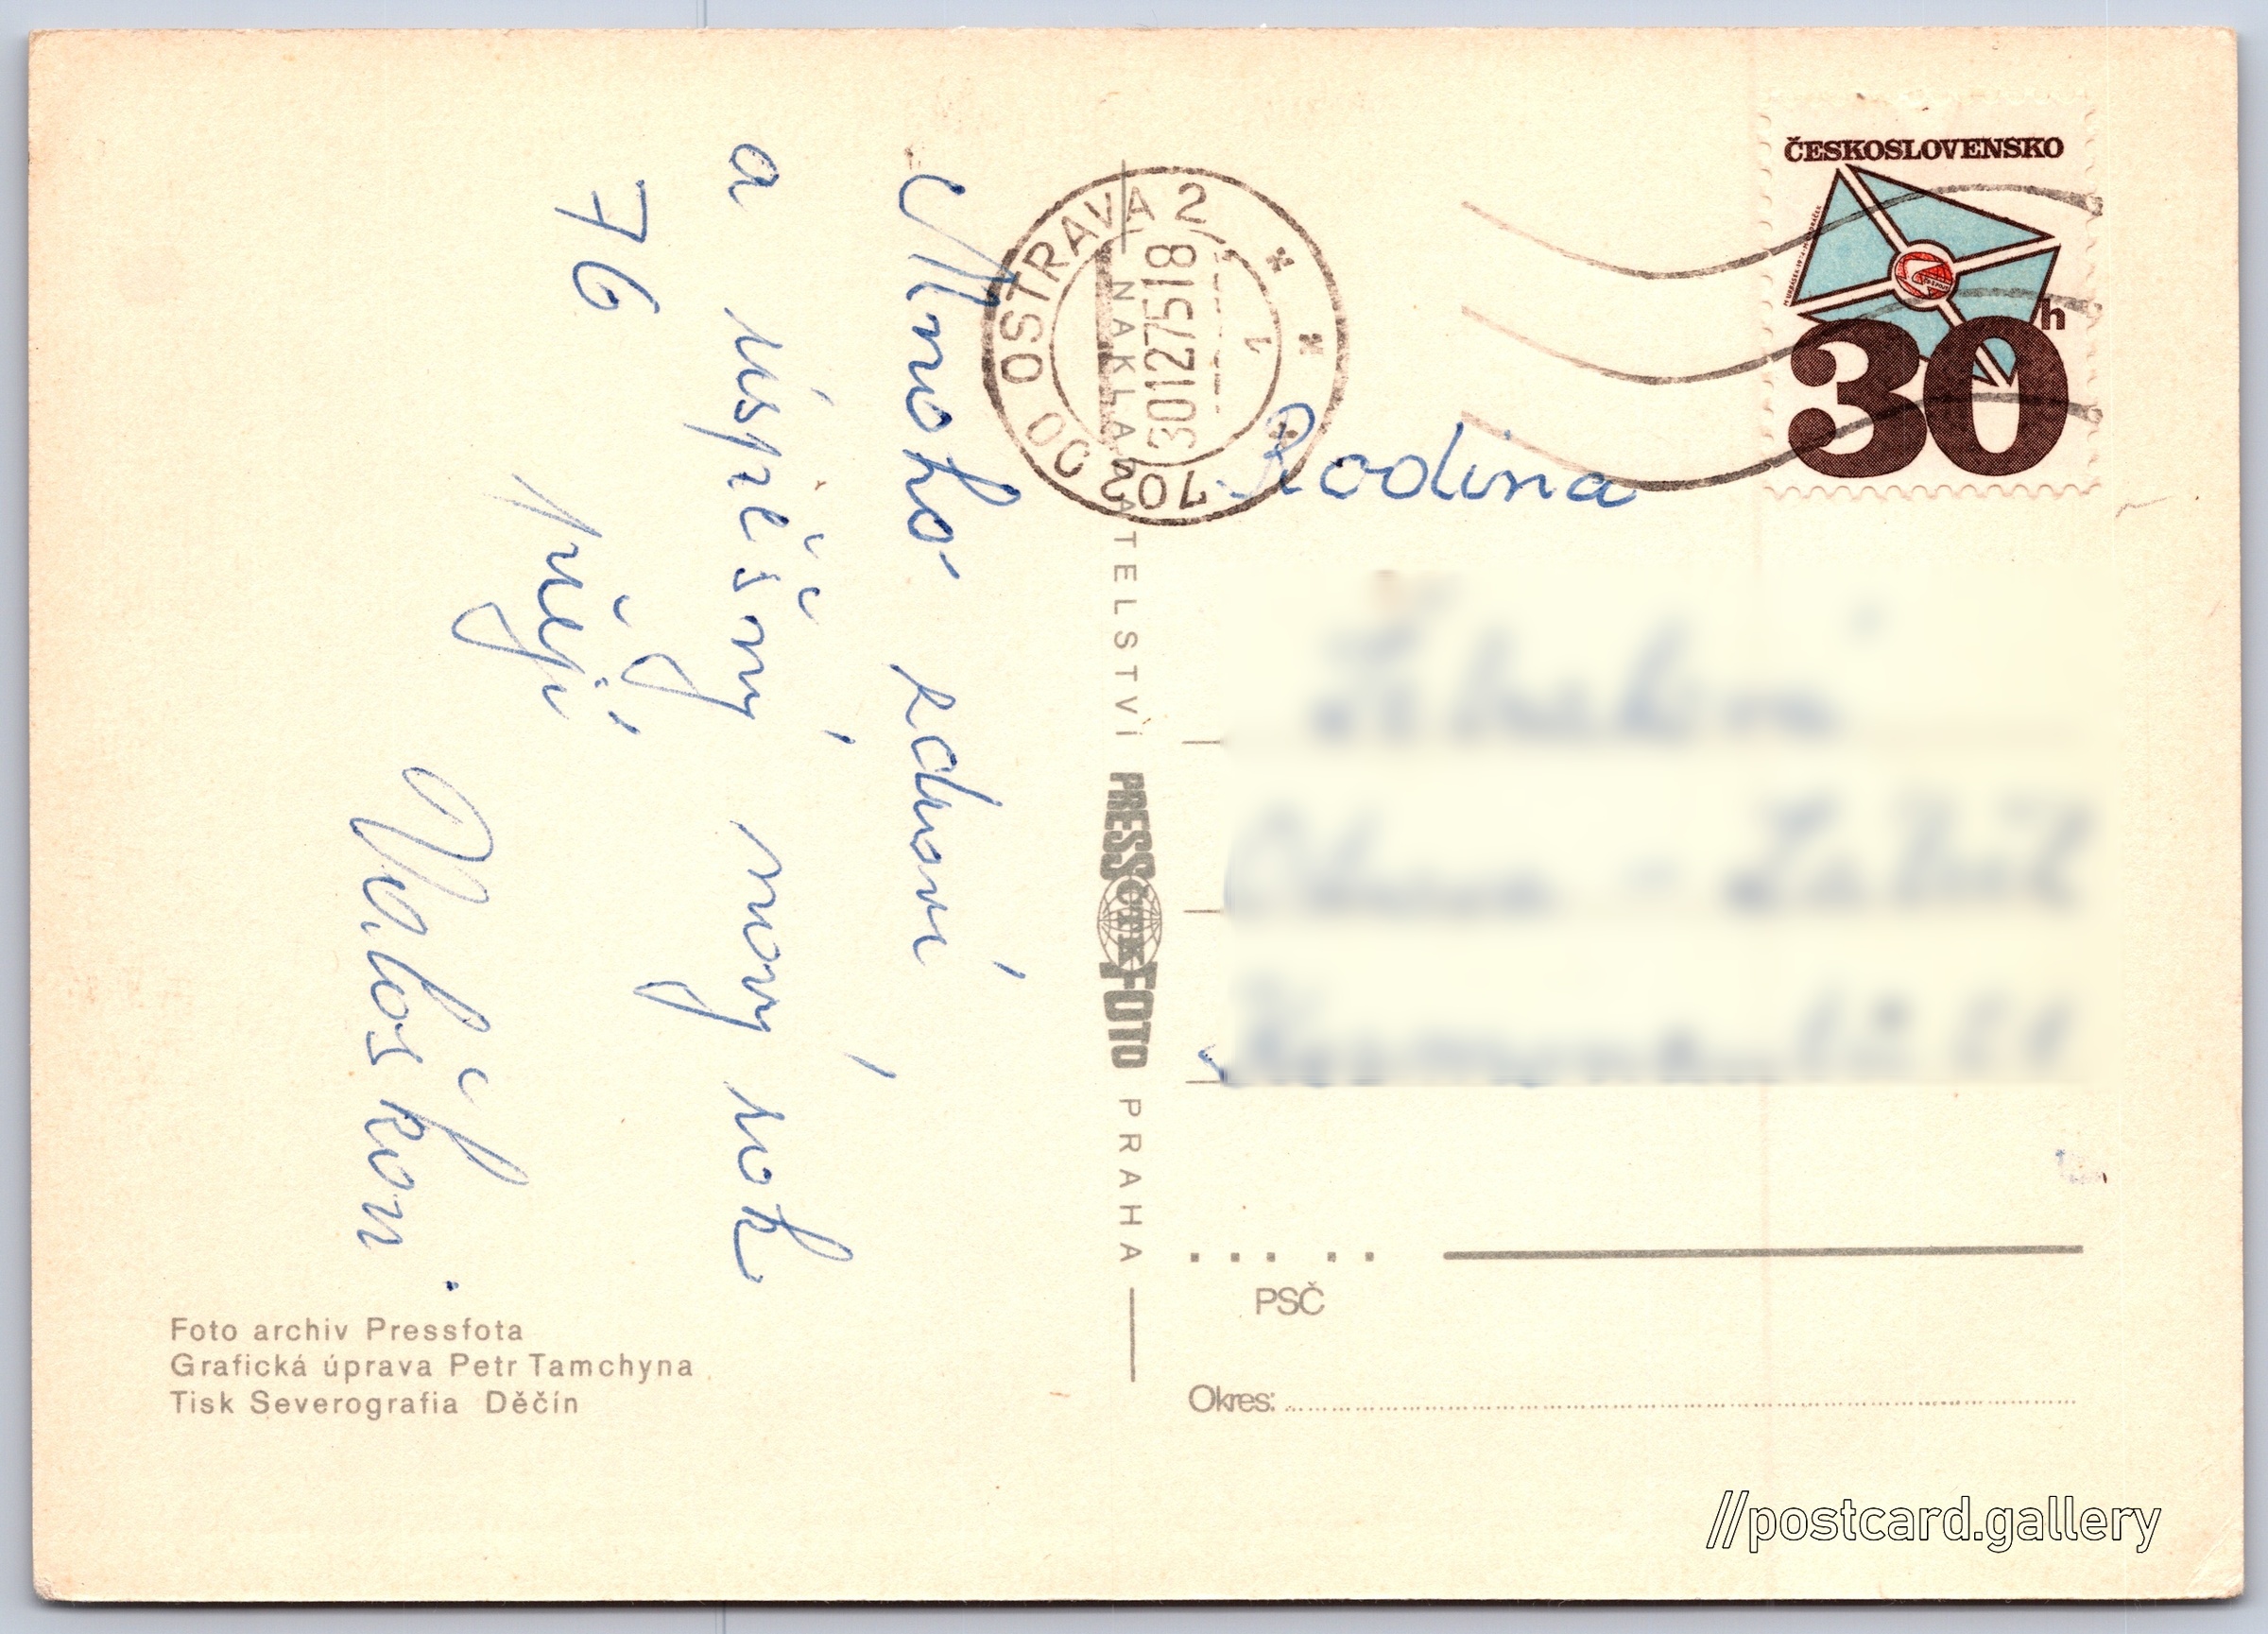 Mnoho zdraví
a úspěšný nový rok
76
přejí
OSTRAVA 2
702 00
30.12.75-18
1
NAKLADATELSTVÍ PRESSFOTO PRAHA
ČTK
ČESKOSLOVENSKO
30h
Rodina
PSČ
Okres:
Foto archiv Pressfota
Grafická úprava Petr Tamchyna
Tisk Severografia Děčín
//postcard.gallery